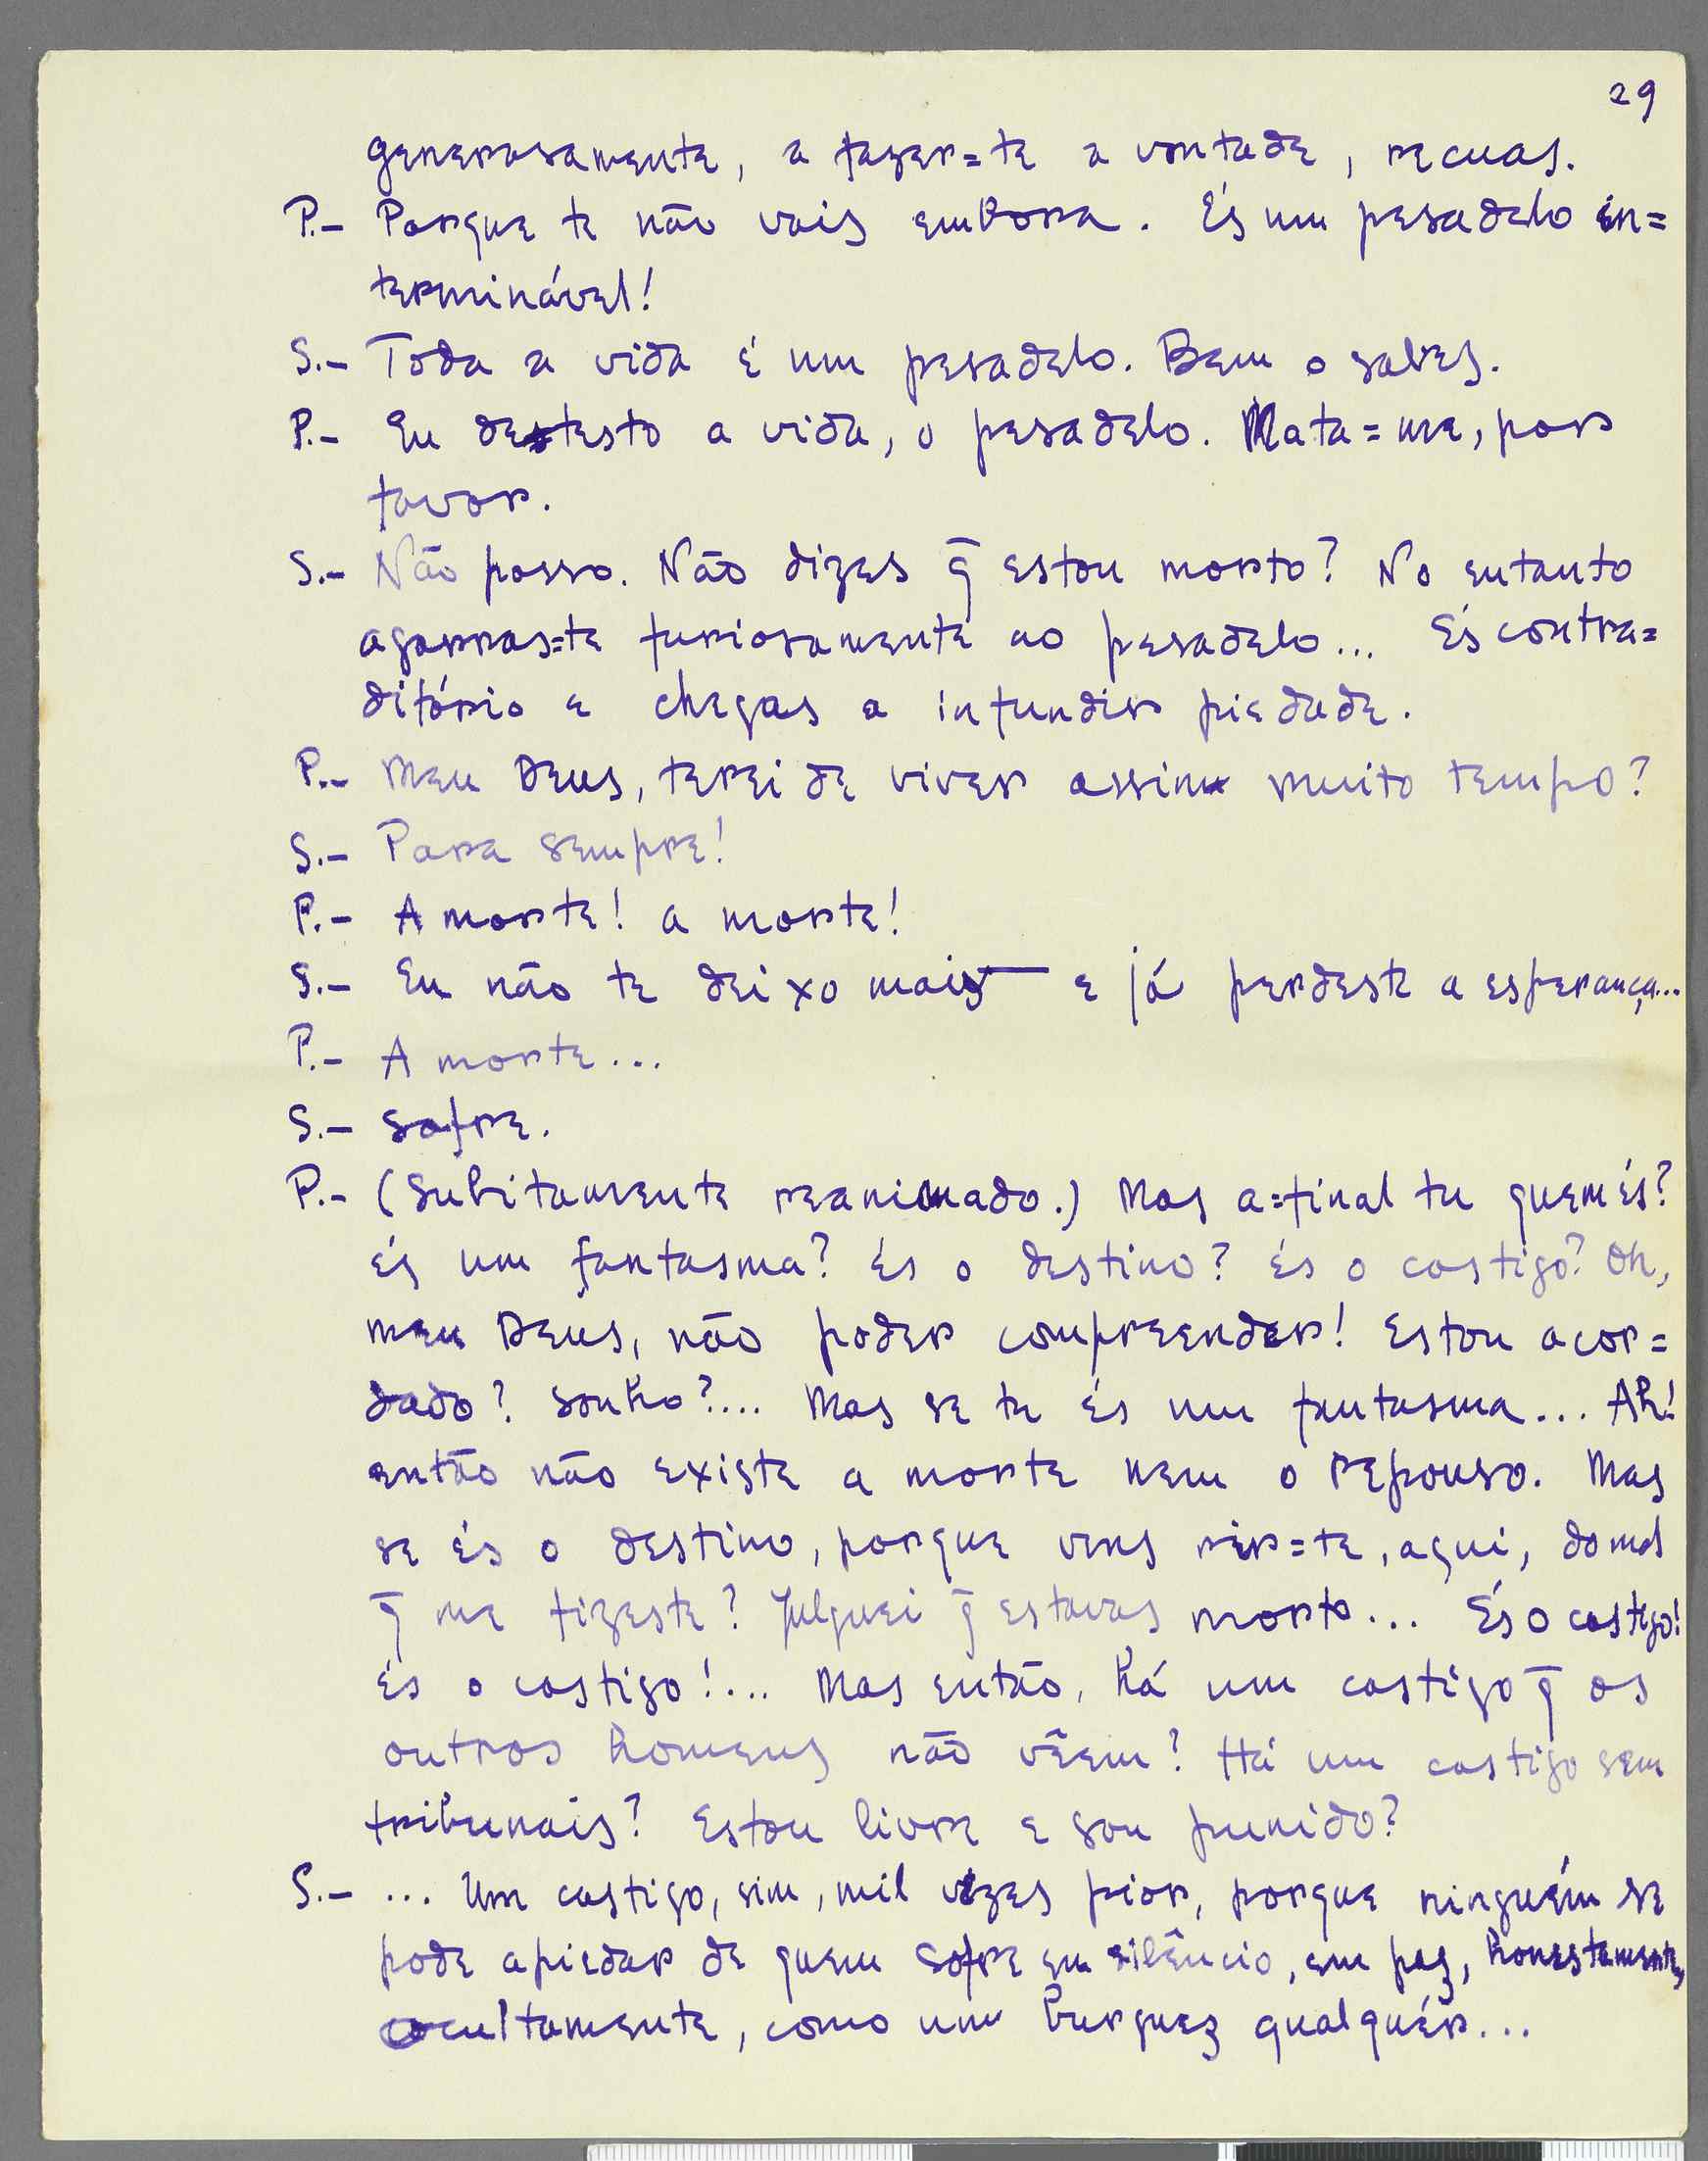 29
generosamente, a fazer=te a vontade, recuas.
P.- Porque te não vais embora. És um pesadelo in=
terminável!
S.- Toda a vida é um pesadelo. Bem o sabes.
P.- Eu detesto a vida, o pesadelo. Mata=me, por
favor.
S.- Não posso. Não dizes q̄ estou morto? No entanto
agarras=te furiosamente ao pesadelo... És contra=
ditório e chegas a infundir piedade.
P.- Meu Deus, terei de viver assim muito tempo?
S.- Para sempre!
P.- A morte! a morte!
S.- Eu não te deixo mais — e já perdeste a esperança...
P.- A morte...
S.- Sofre.
P.- (Subitamente reanimado.) Mas a=final tu quem és?
És um fantasma? És o destino? És o castigo? Oh,
meu Deus, não poder compreender! Estou acor=
dado? Sonho?... Mas se tu és um fantasma... Ah!
então não existe a morte nem o repouso. Mas
se és o destino, porque vens rir=te, aqui, do mal
q̄ me fizeste? Julguei q̄ estavas morto... És o castigo!
És o castigo!... Mas então, há um castigo q̄ os
outros homens não vêem? Há um castigo sem
tribunais? Estou livre e sou punido?
S.- ... Um castigo, sim, mil vezes pior, porque ninguém se
pode apiedar de quem sofre em silêncio, em paz, honestamente,
ocultamente, como um burguez qualquér...